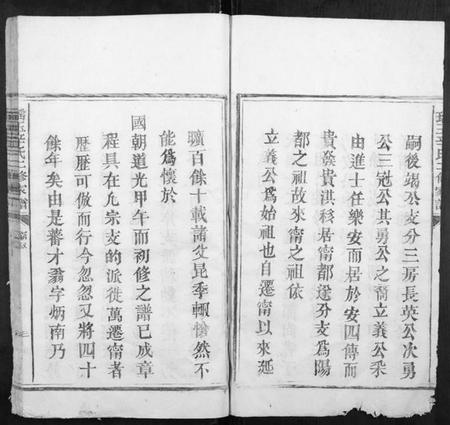 嗣後竭公支分三房長英公次勇
公三冠公其勇公之裔立義公釆
由進士任樂安而居於安四傳而
貴蕟貴淇移居甯都遂分支爲陽
都之祖故來甯之祖依
立義公爲始祖也自遷甯以來延
曠百餘十載諸父昆季輙愴然不
能爲懷於
國朝道光甲午而初修之譜已成章
程具在凢宗支的派徙萬遷甯者
歴歴可倣而行今忽忽又將四十
餘年矣由是蕃才翁字炳南乃